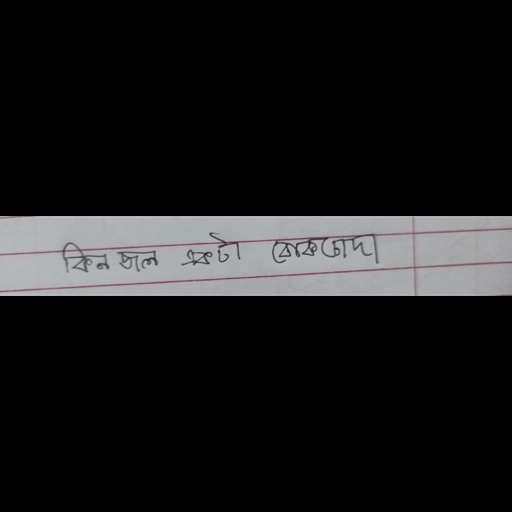 কিনজল একটা বোকাচোদা